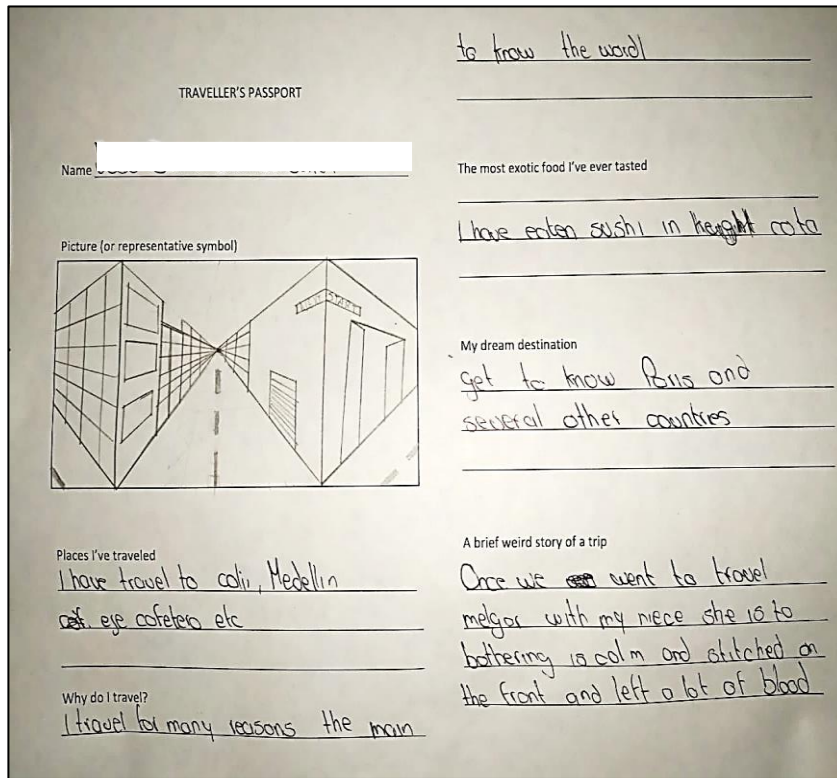 TRAVELLER'S PASSPORT
Name
Picture (or representative symbol)
Places I've traveled
I have travel to cali, Medellin
eje cafetero etc
Why do I travel?
I travel for many reasons the main
to know the world
The most exotic food I've ever tasted
I have eaten sushi in cota
My dream destination
get to know Paris and
several other countries
A brief weird story of a trip
Once we went to travel
melgar with my niece she is to
bothering is calm and stitched on
the front and left a lot of blood